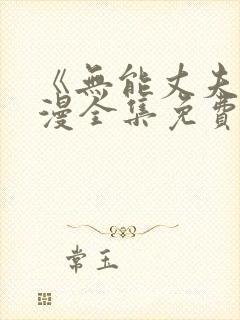 《無能丈夫
漫全集免費
常玉